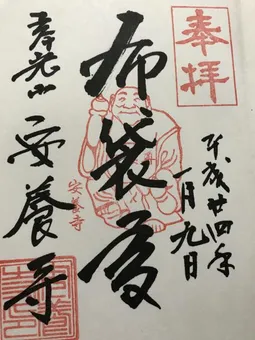 奉拝
平成廿四年
一月九日
布袋尊
安養寺
安養寺